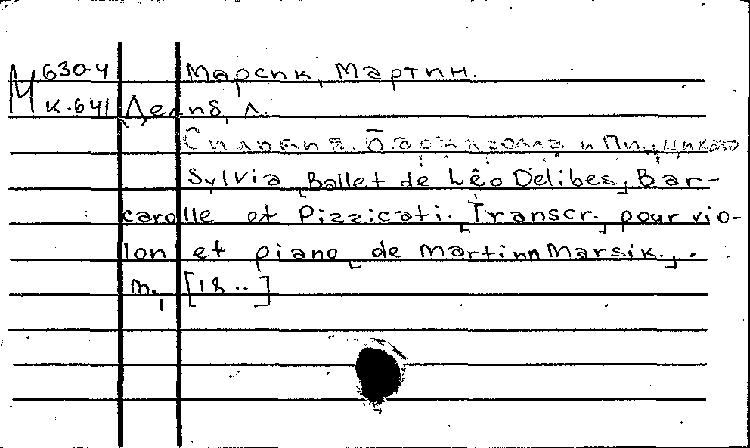 М 630-4 Марсик, Мартин.
К-641 Делиб, Л.
Сильвия. Баркарола и Пиццикато
Sylvia, Ballet de Léo Delibes, Bar-
carolle et Pizzicati. Transcr. pour vio-
lon et piano de Martinn Marsik.
m., [18..]